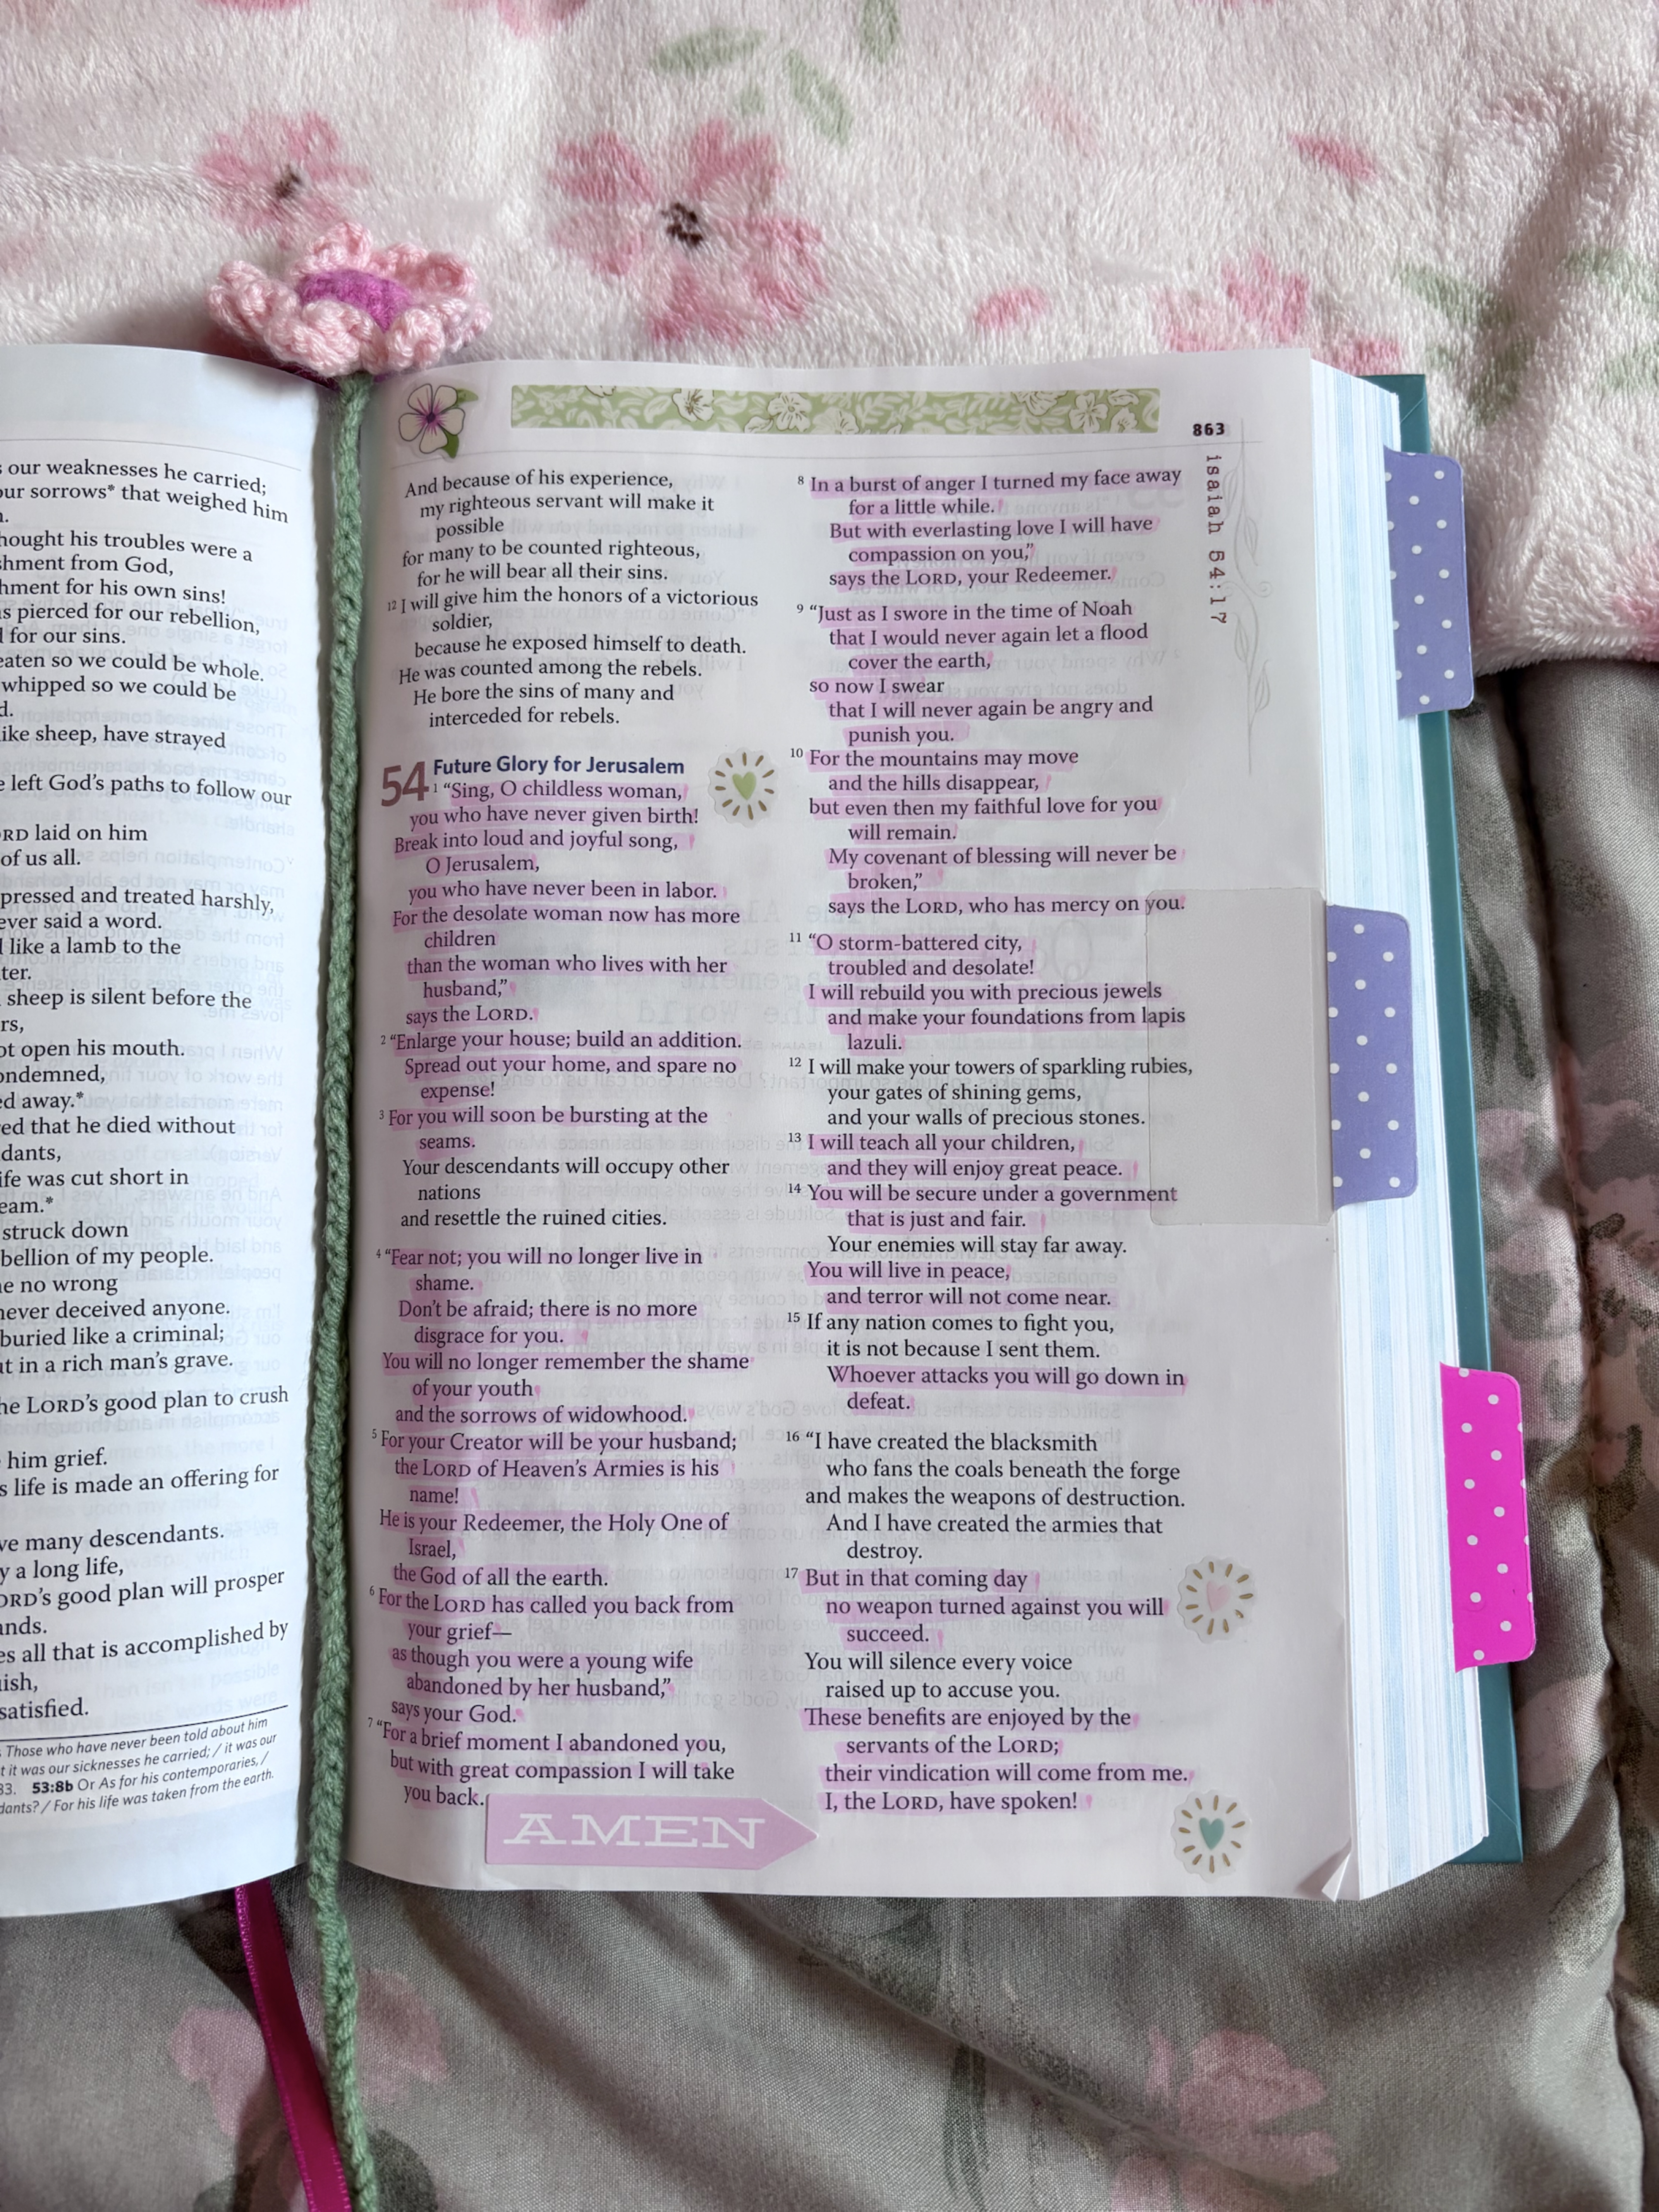 our weaknesses he carried;
our sorrows* that weighed him
hought his troubles were a
shment from God,
hment for his own sins!
s pierced for our rebellion,
for our sins.
eaten so we could be whole.
whipped so we could be
d.
ike sheep, have strayed
e left God's paths to follow our
ORD laid on him
of us all.
pressed and treated harshly,
ever said a word.
like a lamb to the
ter.
sheep is silent before the
rs,
ot open his mouth.
ondemned,
ed away.*
red that he died without
dants,
ife was cut short in
eam.*
struck down
bellion of my people.
ne no wrong
never deceived anyone.
buried like a criminal;
ut in a rich man's grave.
he LORD's good plan to crush
him grief.
s life is made an offering for
ve many descendants.
y a long life,
ORD's good plan will prosper
ands.
es all that is accomplished by
ish,
satisfied.
Those who have never been told about him
t it was our sicknesses he carried; / it was our
33. 53:8b Or As for his contemporaries, /
dants? / For his life was taken from the earth.
863
isaiah 54:17
And because of his experience,
my righteous servant will make it
possible
for many to be counted righteous,
for he will bear all their sins.
12 I will give him the honors of a victorious
soldier,
because he exposed himself to death.
He was counted among the rebels.
He bore the sins of many and
interceded for rebels.
Future Glory for Jerusalem
54 1 “Sing, O childless woman,
you who have never given birth!
Break into loud and joyful song,
O Jerusalem,
you who have never been in labor.
For the desolate woman now has more
children
than the woman who lives with her
husband,”
says the LORD.
2 “Enlarge your house; build an addition.
Spread out your home, and spare no
expense!
3 For you will soon be bursting at the
seams.
Your descendants will occupy other
nations
and resettle the ruined cities.
4 “Fear not; you will no longer live in
shame.
Don't be afraid; there is no more
disgrace for you.
You will no longer remember the shame
of your youth
and the sorrows of widowhood.
5 For your Creator will be your husband;
the LORD of Heaven's Armies is his
name!
He is your Redeemer, the Holy One of
Israel,
the God of all the earth.
6 For the LORD has called you back from
your grief—
as though you were a young wife
abandoned by her husband,”
says your God.
7 “For a brief moment I abandoned you,
but with great compassion I will take
you back.
AMEN
8 In a burst of anger I turned my face away
for a little while.
But with everlasting love I will have
compassion on you,”
says the LORD, your Redeemer.
9 “Just as I swore in the time of Noah
that I would never again let a flood
cover the earth,
so now I swear
that I will never again be angry and
punish you.
10 For the mountains may move
and the hills disappear,
but even then my faithful love for you
will remain.
My covenant of blessing will never be
broken,”
says the LORD, who has mercy on you.
11 “O storm-battered city,
troubled and desolate!
I will rebuild you with precious jewels
and make your foundations from lapis
lazuli.
12 I will make your towers of sparkling rubies,
your gates of shining gems,
and your walls of precious stones.
13 I will teach all your children,
and they will enjoy great peace.
14 You will be secure under a government
that is just and fair.
Your enemies will stay far away.
You will live in peace,
and terror will not come near.
15 If any nation comes to fight you,
it is not because I sent them.
Whoever attacks you will go down in
defeat.
16 “I have created the blacksmith
who fans the coals beneath the forge
and makes the weapons of destruction.
And I have created the armies that
destroy.
17 But in that coming day
no weapon turned against you will
succeed.
You will silence every voice
raised up to accuse you.
These benefits are enjoyed by the
servants of the LORD;
their vindication will come from me.
I, the LORD, have spoken!